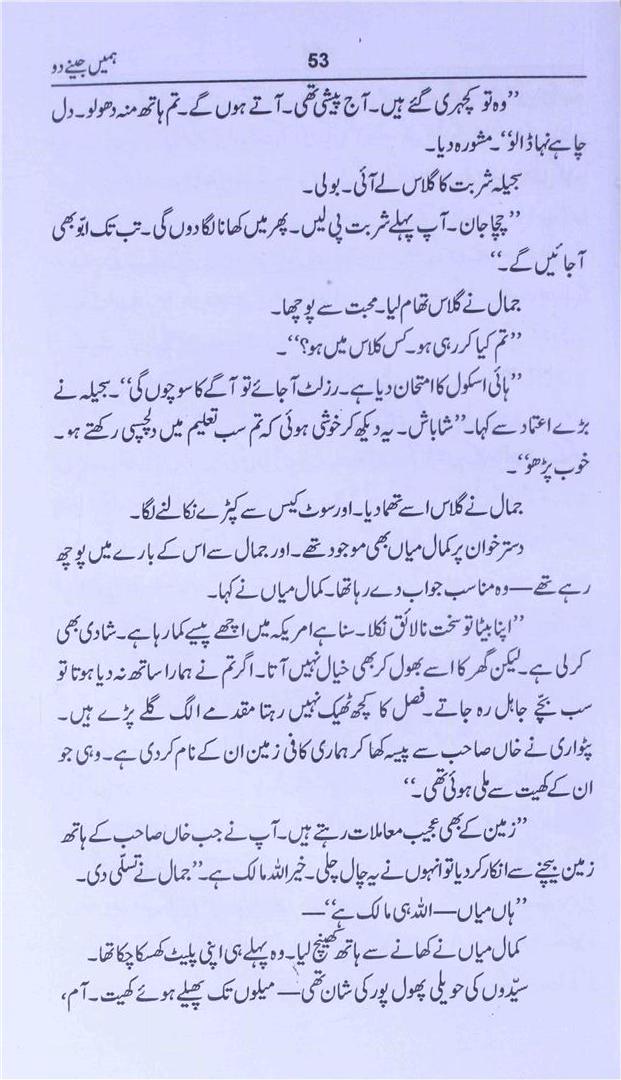 ہمیں جینے دو
53
’’وہ تو کچہری گئے ہیں۔ آج پیشی تھی۔ آتے ہوں گے۔ تم ہاتھ منہ دھولو۔ دل
چاہے نہا ڈالو‘‘۔ مشورہ دیا۔
سجیلہ شربت کا گلاس لے آئی۔ بولی۔
’’چچا جان۔ آپ پہلے شربت پی لیں۔ پھر میں کھانا لگا دوں گی۔ تب تک ابّو بھی
آجائیں گے۔‘‘
جمال نے گلاس تھام لیا۔ محبت سے پوچھا۔
’’تم کیا کر رہی ہو۔ کس کلاس میں ہو؟‘‘۔
’’ہائی اسکول کا امتحان دیا ہے۔ رزلٹ آجائے تو آگے کا سوچوں گی‘‘۔ سجیلہ نے
بڑے اعتماد سے کہا۔ ’’شاباش۔ یہ دیکھ کر خوشی ہوئی کہ تم سب تعلیم میں دلچسپی رکھتے ہو۔
خوب پڑھو‘‘۔
جمال نے گلاس اسے تھما دیا۔ اور سوٹ کیس سے کپڑے نکالنے لگا۔
دسترخوان پر کمال میاں بھی موجود تھے۔ اور جمال سے اس کے بارے میں پوچھ
رہے تھے — وہ مناسب جواب دے رہا تھا۔ کمال میاں نے کہا۔
’’اپنا بیٹا تو سخت نالائق نکلا۔ سنا ہے امریکہ میں اچھے پیسے کما رہا ہے۔ شادی بھی
کرلی ہے۔ لیکن گھر کا اسے بھول کر بھی خیال نہیں آتا۔ اگر تم نے ہمارا ساتھ نہ دیا ہوتا تو
سب بچّے جاہل رہ جاتے۔ فصل کا کچھ ٹھیک نہیں رہتا مقدمے الگ گلے پڑے ہیں۔
پٹواری نے خاں صاحب سے پیسہ کھا کر ہماری کافی زمین ان کے نام کردی ہے۔ وہی جو
ان کے کھیت سے ملی ہوئی تھی۔‘‘
’’زمین کے بھی عجیب معاملات رہتے ہیں۔ آپ نے جب خاں صاحب کے ہاتھ
زمین بیچنے سے انکار کر دیا تو انہوں نے یہ چال چلی۔ خیر اللہ مالک ہے۔‘‘ جمال نے تسلّی دی۔
’’ہاں میاں — اللہ ہی مالک ہے‘‘ —
کمال میاں نے کھانے سے ہاتھ کھینچ لیا۔ وہ پہلے ہی اپنی پلیٹ کھسکا چکا تھا۔
سیّدوں کی حویلی پھول پور کی شان تھی — میلوں تک پھیلے ہوئے کھیت۔ آم،